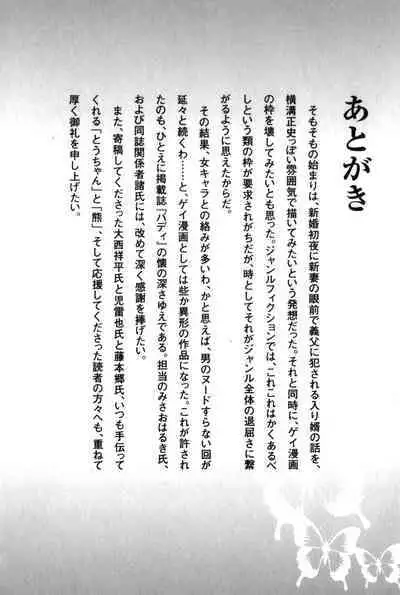 あとがき
そもそもの始まりは、新婚初夜に新妻の眼前で義父に犯される入り婿の話を、
横溝正史っぽい雰囲気で描いてみたいという発想だった。それと同時に、ゲイ漫画
の枠を壊してみたいとも思った。ジャンルフィクションでは、これこれはかくあるべ
しという類の枠が要求されがちだが、時としてそれがジャンル全体の退屈さに繋
がるように思えたからだ。
その結果、女キャラとの絡みが多いわ、かと思えば、男のヌードすらない回が
延々と続くわ……と、ゲイ漫画としては些か異形の作品になった。これが許され
たのも、ひとえに掲載誌『バディ』の懐の深さゆえである。担当のみさおはるき氏、
および同誌関係者諸氏には、改めて深く感謝を捧げたい。
また、寄稿してくださった大西祥平氏と児雷也氏と藤本郷氏、いつも手伝って
くれる「とうちゃん」と「熊」、そして応援してくださった読者の方々へも、重ねて
厚く御礼を申し上げたい。